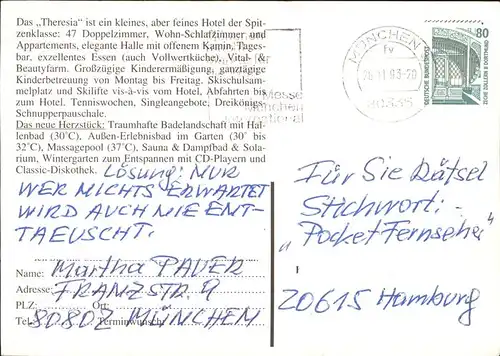 Das „Theresia" ist ein kleines, aber feines Hotel der Spit-
zenklasse: 47 Doppelzimmer, Wohn-Schlafzimmer und
Appartements, elegante Halle mit offenem Kamin, Tages-
bar, exzellentes Essen (auch Vollwertküche), Vital- &
Beautyfarm. Großzügige Kinderermäßigung, ganztägige
Kinderbetreuung von Montag bis Freitag. Skischulsam-
melplatz und Skilifte vis-à-vis vom Hotel, Abfahrten bis
zum Hotel. Tenniswochen, Singleangebote, Dreikönigs-
Schnupperpauschale.
Das neue Herzstück: Traumhafte Badelandschaft mit Hal-
lenbad (30°C), Außen-Erlebnisbad im Garten (30° bis
32°C), Massagepool (37°C), Sauna & Dampfbad & Sola-
rium, Wintergarten zum Entspannen mit CD-Playern und
Classic-Diskothek.
Lösung: NUR
WER NICHTS ERWARTET
WIRD AUCH NIE ENT-
TAEUSCHT.
Name: Martha PAUER
Adresse: FRANZSTR. 9
PLZ: Ort:
Tel. 80802 Terminwunsch: MÜNCHEN
Messe
München
International
MÜNCHEN
fv
80335
80
DEUTSCHE BUNDESPOST
ZECHE ZOLLERN II DORTMUND
Für Sie Rätsel
Stichwort:
„Pocket Fernseher"
20615 Hamburg